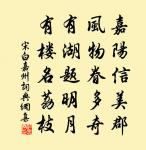 嘉陽信美郡
風物眷多奇
有湖題明月
有樓名荔枝
宋白嘉州詞典網集